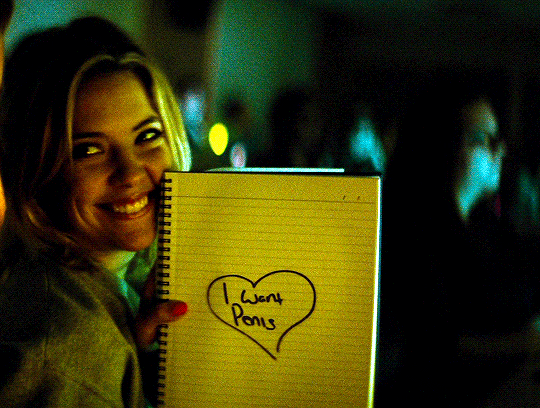 I want
Penis